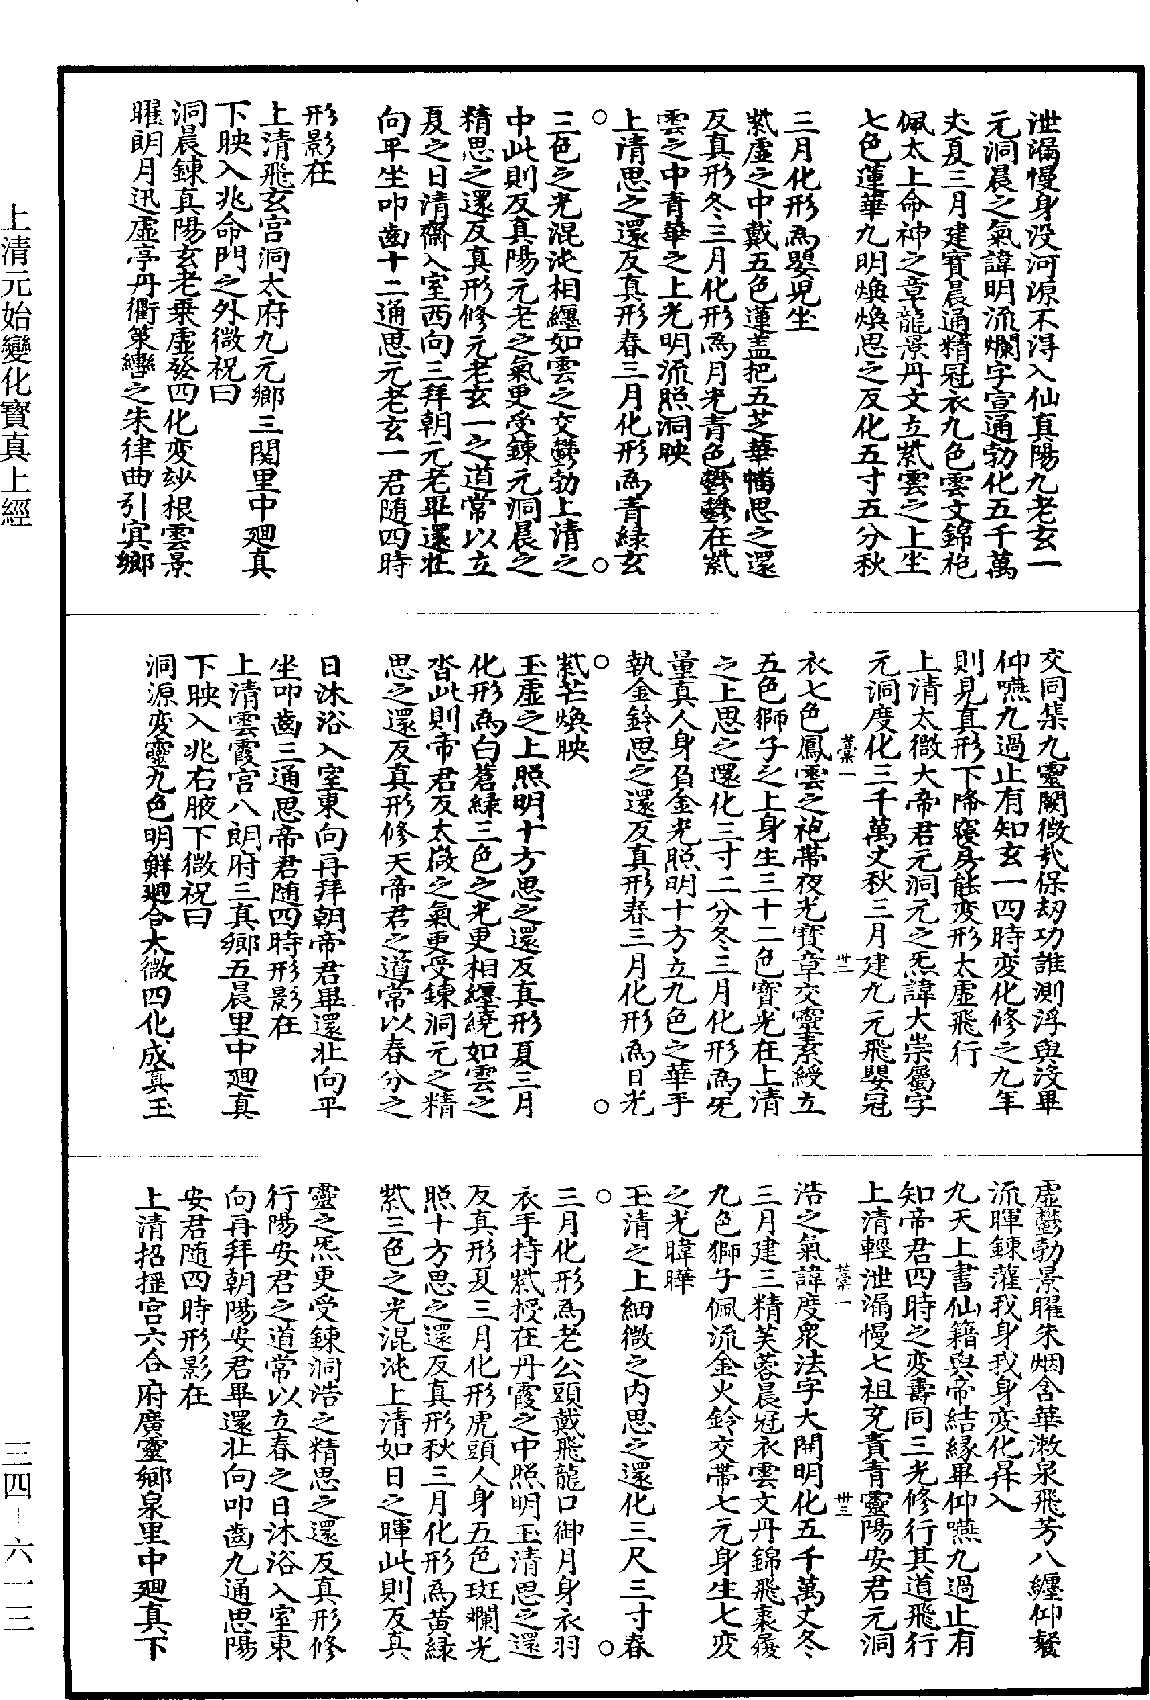 泄漏慢身没河源不得入仙真陽九老玄一
元洞晨之氣諱明流爛字宣通勃化五千萬
丈夏三月建寳晨通精冠衣九色雲文錦袍
佩太上命神之章龍景丹文立紫雲之上坐
七色蓮華九明煥煥思之反化五寸五分秋
三月化形為嬰児坐
紫虛之中戴五色蓮盖把五芝華幡思之還
反真形冬三月化形為月光青色欝欝在紫
雲之中青華之上光明流照洞映
上清思之還反真形春三月化形為青緑玄
三色之光混沌相纒如雲之交欝勃上清之
中此則反真陽元老之氣更受錬元洞晨之
精思之還反真形修元老玄一之道常以立
夏之日清齋入室西向三拜朝元老畢還壯
向平坐叩齒十二通思元老玄一君随四時
形影在
上清飛玄宫洞太府九元鄉三関里中廻真
下映入兆命門之外微祝曰
洞晨錬真陽玄老乗虛發四化変妙根雲景
曜朗月迅虛亭丹衢策轡之朱律曲引㝠鄉
交同集九靈闕微㢤保劫功誰測浮與没畢
仰嚥九過止有知玄一四時変化修之九年
則見真形下降寝身能変形太虛飛行
上清太微大帝君元洞元之炁諱大崇屬字
元洞度化三千萬丈秋三月建九元飛嬰冠
藁一
卅二
衣七色鳳雲之袍帶夜光寳章交靈素綬立
五色獅子之上身生三十二色寳光在上清
之上思之還化三寸二分冬三月化形為旡
量真人身負金光照明十方立九色之華手
執金鈴思之還反真形春三月化形為日光
紫芒煥映
玉虛之上照明十方思之還反真形夏三月
化形為白蒼緑三色之光更相纒繞如雲之
沓此則帝君反太微之氣更受錬洞元之精
思之還反真形修天帝君之道常以春分之
日沐浴入室東向再拜朝帝君畢還壯向平
坐叩齒三通思帝君随四時形影在
上清雲霞宫八朗府三真鄉五晨里中廻真
下映入兆右腋下微祝曰
洞源変靈九色明鮮廻合太微四化成真玉
虛欝勃景曜朱烟含華漱泉飛芳八纒仰餐
流暉錬灌我身我身変化昇入
九天上書仙籍與帝結緣畢仰嚥九過止有
知帝君四時之変壽同三光修行其道飛行
上清輕泄漏慢七祖充責青靈陽安君元洞
藁一
卅三
浩之氣諱度衆法字大開明化五千萬丈冬
三月建三精芙蓉晨冠衣雲文丹錦飛裘履
九色獅子佩流金火鈴交帶七元身生七変
之光暐曄
玉清之上細微之内思之還化三尺三寸春
三月化形為老公頭戴飛龍口御月身衣羽
衣手持紫授在丹霞之中照明玉清思之還
反真形夏三月化形虎頭人身五色斑斕光
照十方思之還反真形秋三月化形為黄緑
紫三色之光混沌上清如日之暉此則反真
靈之炁更受錬洞浩之精思之還反真形修
行陽安君之道常以立春之日沐浴入室東
向再拜朝陽安君畢還壯向叩齒九通思陽
安君随四時形影在
上清招揺宫六合府廣靈鄉泉里中廻真下
上清元始變化寶真上經
三四—六一三